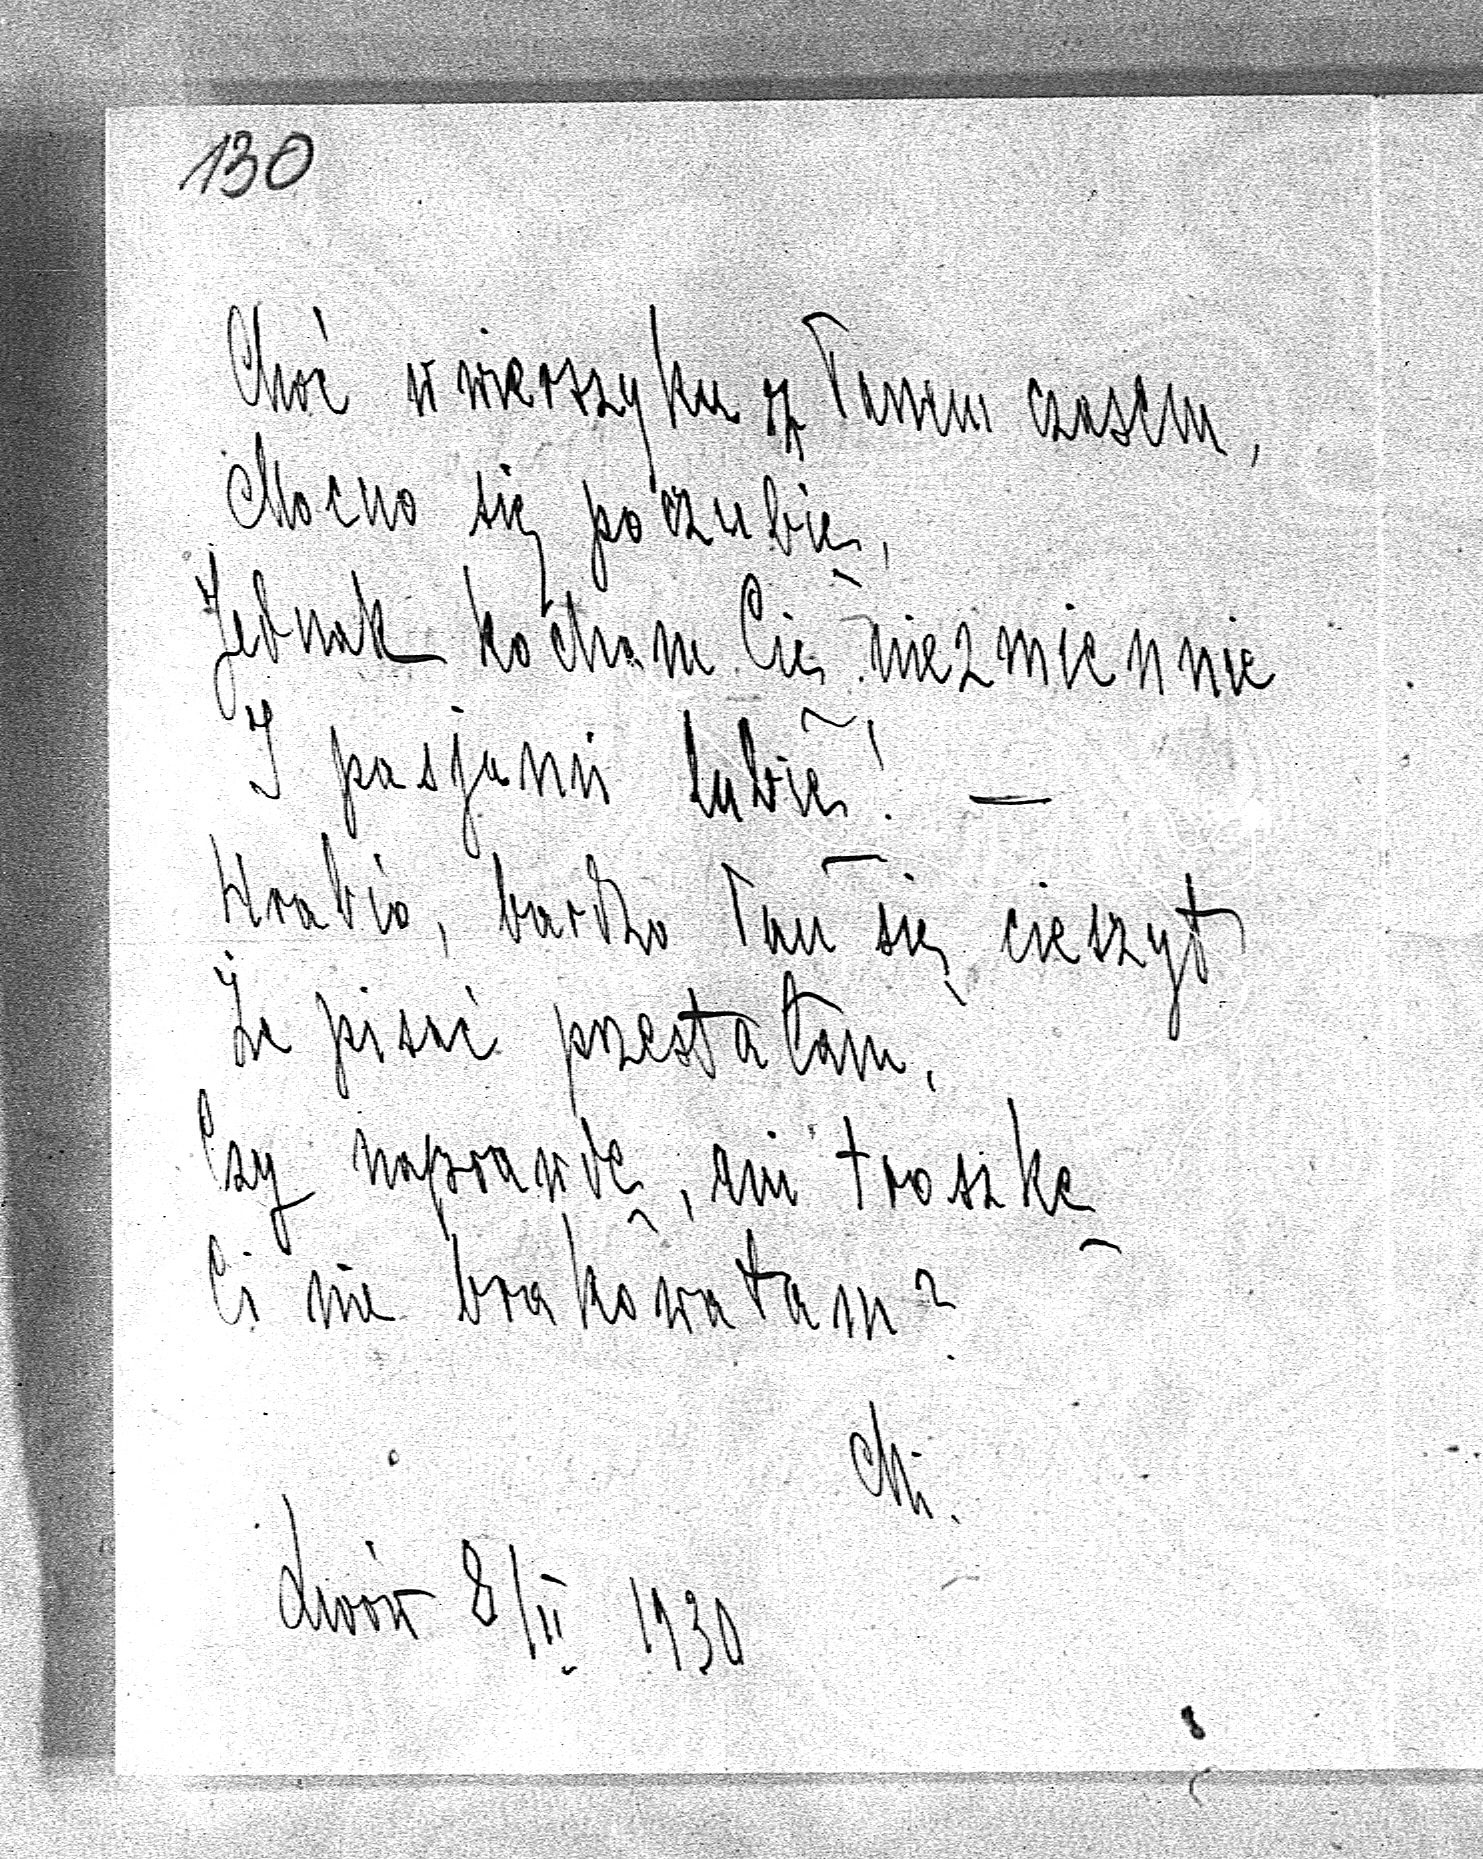 130
Choć w wierszyku z Tobą czasem,
Mocno się poczubię,
Jednak kocham Cię niezmiennie
I pasjami lubię! —
Hrabio, bardzoś Tam się cieszył
Że pisać przestałam,
Czy naprawdę, ani troszkę
Ci nie brakowałam?
Mi.
Lwów 8/II 1930